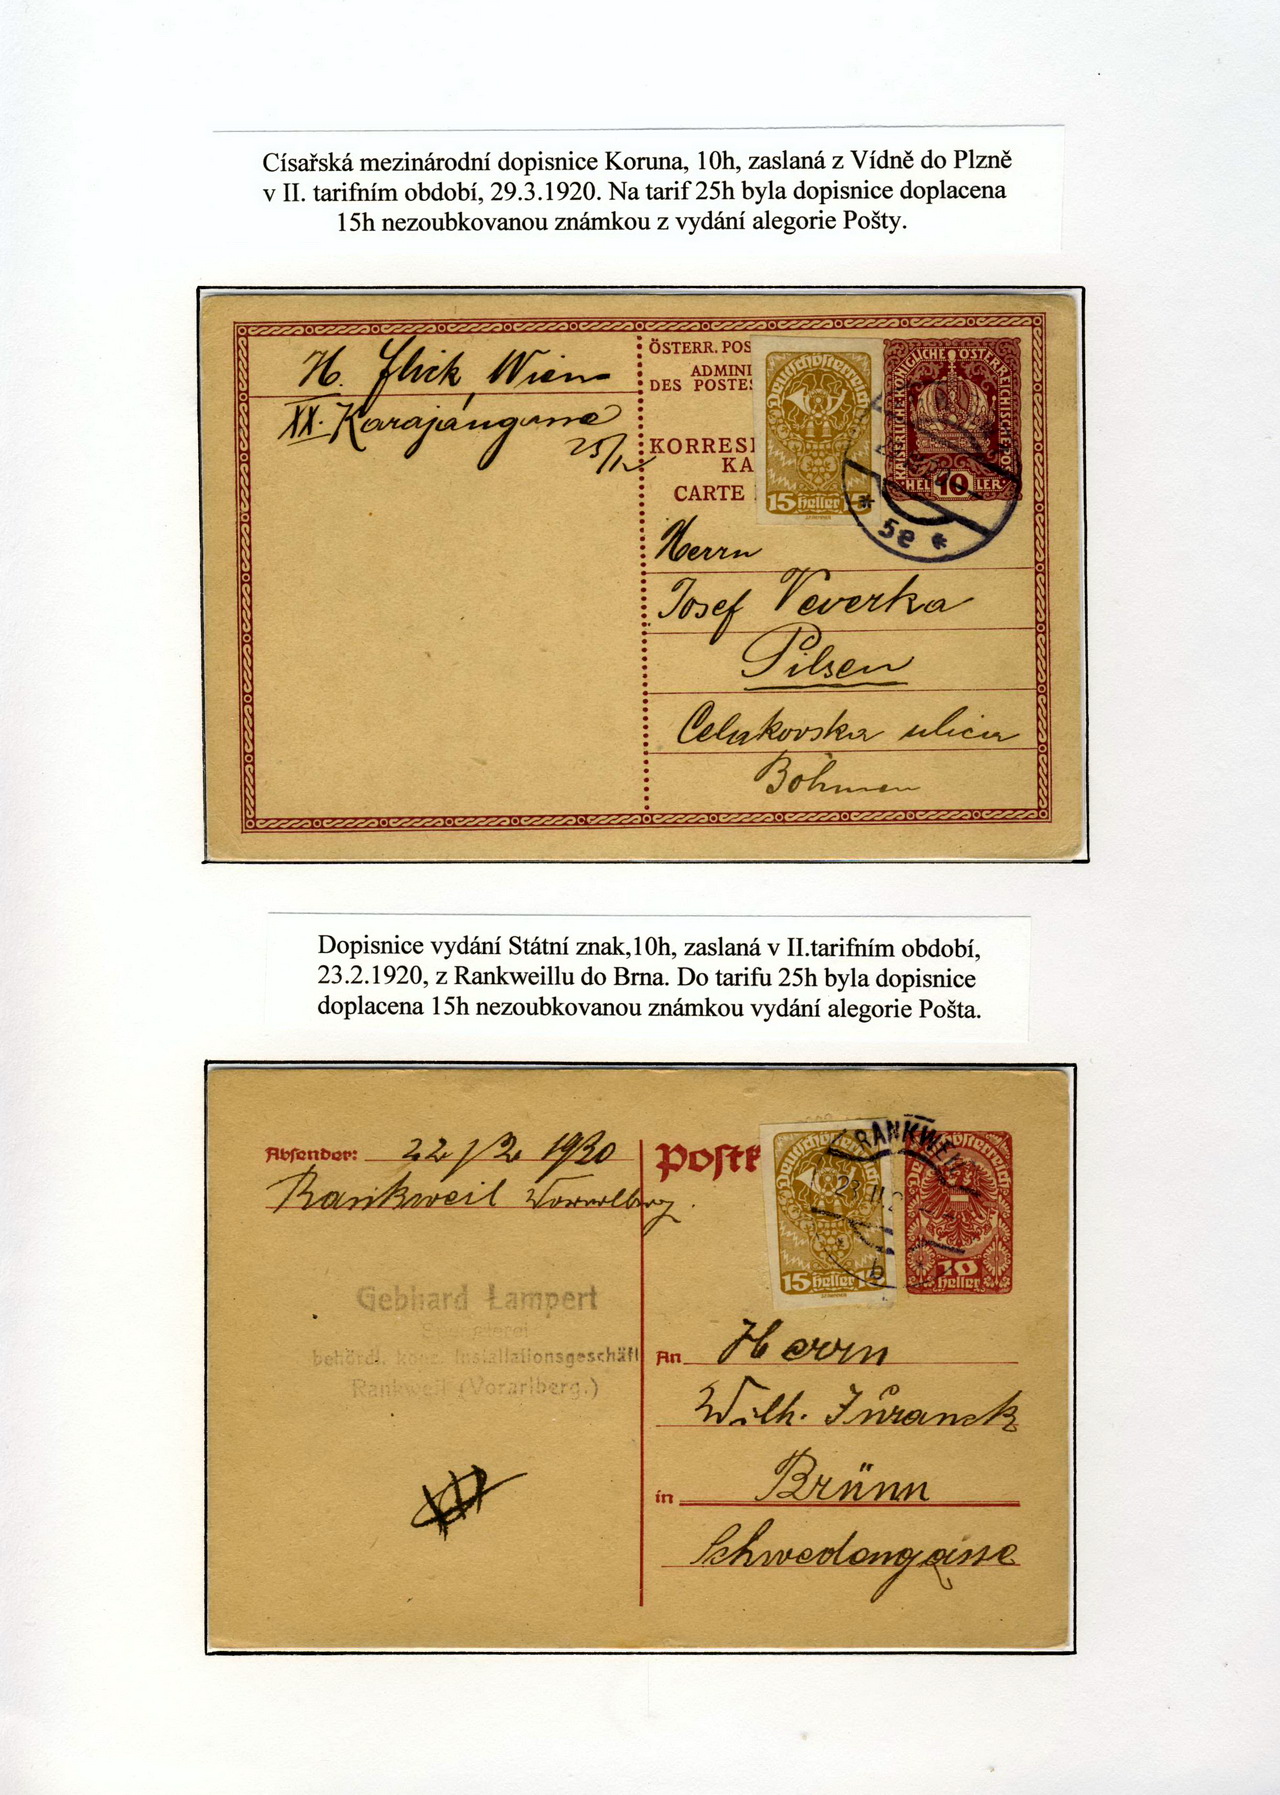 Císařská mezinárodní dopisnice Koruna, 10h, zaslaná z Vídně do Plzně
v II. tarifním období, 29.3.1920. Na tarif 25h byla dopisnice doplacena
15h nezoubkovanou známkou z vydání alegorie Pošty.
H. Flick, Wien
XX. Karajangasse
25/12
ÖSTERR. POS
ADMINI
DES POSTES
KORRESP
KA
CARTE
Deutschösterreich
15 Heller 15
KAISERLICHE KÖNIGLICHE ÖSTERREICHISCHE POST
HEL 10 LER
* 5e *
Herrn
Josef Veverka
Pilsen
Celakovska ulicia
Böhmen
Dopisnice vydání Státní znak,10h, zaslaná v II.tarifním období,
23.2.1920, z Rankweillu do Brna. Do tarifu 25h byla dopisnice
doplacena 15h nezoubkovanou známkou vydání alegorie Pošta.
Absender: 22/2 1920
Rankweil Vorarlberg.
Postk
Deutschösterreich
15 Heller 15
RANKWEIL
23.II.2
b
10
Heller
Gebhard Lampert
Spenglerei
behördl. konz. Installationsgeschäft
Rankweil (Vorarlberg.)
An Herrn
Wilh. Juranek
in Brünn
Schwedengasse